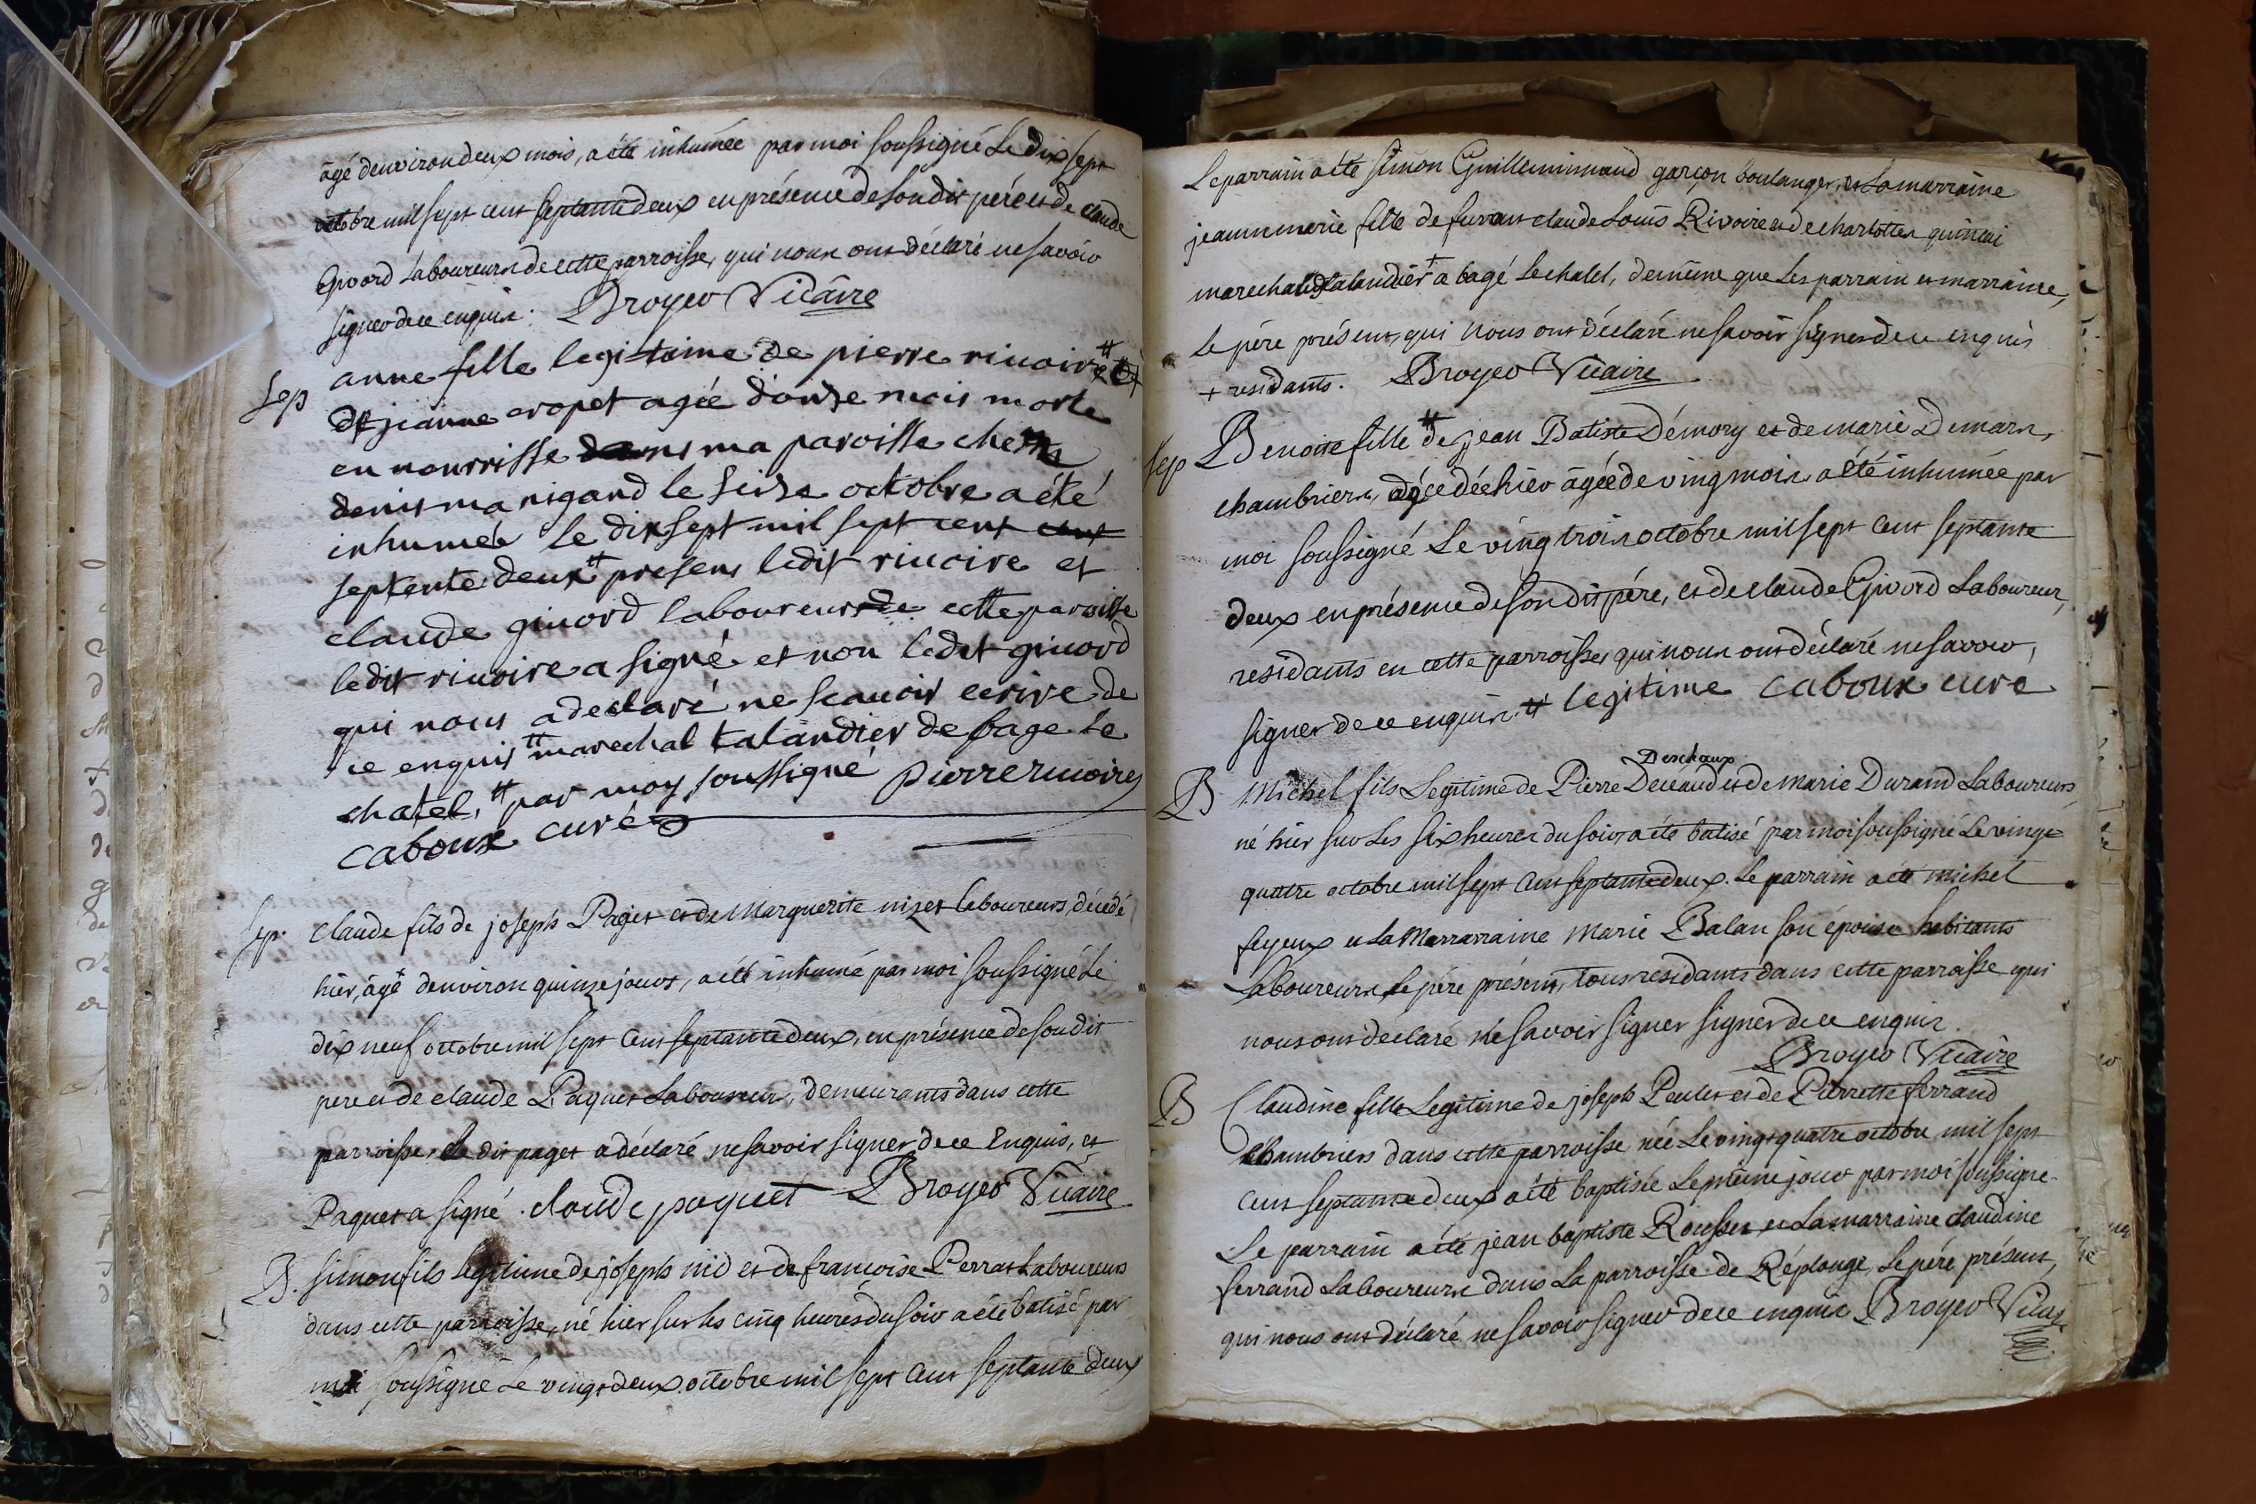 âgé denviron deux mois, a été inhumée par moi soussigné le dix sept
octobre mil sept cent septante deux en présence de son dit pére et de claude
Givord laboureurs de cette parroisse, qui nous ont déclaré ne savoir
signer de ce enquis. Broyer Vicaire
Sep anne fille legitaime de pierre rivoire # et
de jeanne cropet agée d'onze mois morte
en nourrisse dans ma paroisse chez
denis manigand le seize octobre a été
inhumée le dix sept mil sept cent cent
septente deux # presens ledit rivoire et
claude givord laboureurs de cette paroisse
ledit rivoire a signé et non ledit givord
qui nous a declaré ne scauoir ecrire de
ce enquis # marechal talandier de bage le
chatel, # par moy soussigné pierre rivoire
caboux curé
Sep. Claude fils de joseph Paget et de Marguerite nizet laboureurs, décédé
hier, âgé denviron quinze jours, a été inhumé par moi soussigné le
dix neuf octobre mil sept cent septante deux, en présence de son dit
pere et de claude Paquet laboureur, demeurants dans cette
parroisse, le dit paget a déclaré ne savoir signer de ce Enquis, et
Paquet a signé. claude paquet Broyer Vicaire
B. Simon fils legitime de joseph nid et de francoise Perrat laboureurs
dans cette parroisse, né hier sur les cinq heures du soir a été batisé par
moi soussigné le vingt deux octobre mil sept cent septante deux
Le parrain a été simon Guilleminaud garçon boulanger, et la marraine
jeanne marie fille de fuvant claude Louis Rivoire et de charlotte
marechal talandier + a bagé le chatel, de même que les parrain et marraine,
le pére présent, qui nous ont déclaré ne savoir signer de ce enquis
+ residants. Broyer Vicaire
Sep Benoite fille # de jean Batiste Démory et de marie Demars,
chambriers, décédée hier âgée de ving mois a été inhumée par
moi soussigné le ving trois octobre mil sept cent septante
deux en présence de son dit pére, et de claude Givord laboureur,
residants en cette parroisse, qui nous ont déclaré ne savoir,
signer de ce enquis. # legitime caboux curé
Deschaux
B Michel fils Legitime de Pierre Deceaud et de Marie Durand Laboureurs,
né hier sur les six heures du soir, a été batisé par moi soussigné le vingt
quatre octobre mil sept cent septante deux. le parrain a été michel
feyeux et la Marrarraine Marie Balan son épouse habitants
Laboureurs, le pére présent, tous residants dans cette parroisse qui
nous ont declaré ne savoir signer signer de ce enquis.
Broyer Vicaire
B Claudine fille Legitime de joseph Peulet et de Pierrette ferrand
chambriers dans cette parroisse née le vingt quatre octobre mil sept
cent septante deux a été baptisée le même jour par moi soussigne.
Le parrain a été jean baptiste Rousset et la marraine claudine
ferrand Laboureurs dans la parroisse de Réplonge, le pére présent,
qui nous ont déclaré ne savoir signer de ce enquis Broyer Vicaire